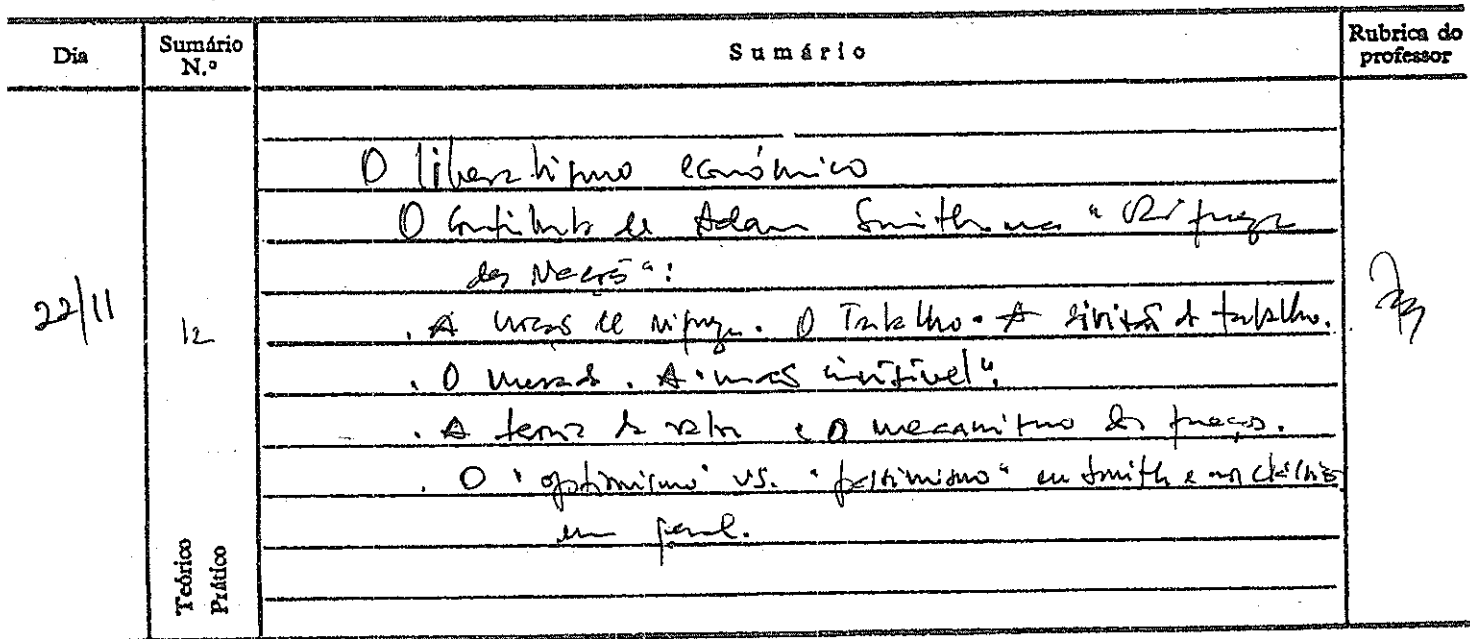 Dia
Sumário N.º
Sumário
Rubrica do professor
O liberalismo económico
O contributo de Adam Smith na "Riqueza
das Nações":
22/11
12
. A noção de riqueza. O Trabalho. A divisão do trabalho.
. O mercado. A "mão invisível".
. A teoria do valor e o mecanismo dos preços.
. O "optimismo" vs. "pessimismo" em Smith e nos clássicos
em geral.
Teórico
Prático